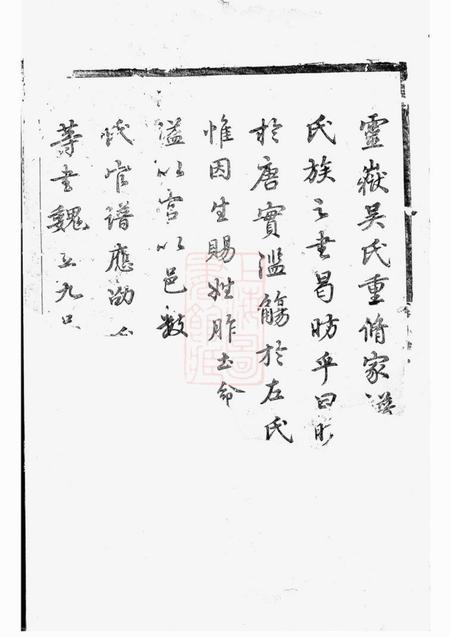 靈嶽吳氏重脩家譜
氏族之書曷昉乎曰昉
於唐實濫觴於左氏
惟因生賜姓胙土命
謚以官以邑數
官譜應劭
等書魏立九品